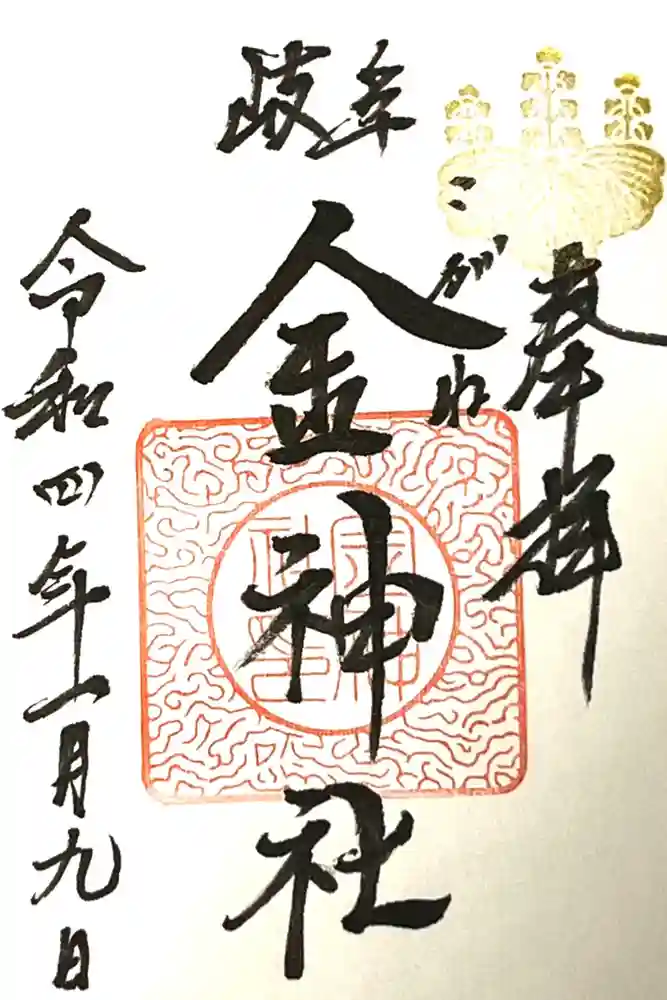 奉拝
岐阜
こがね
金神社
令和四年一月九日